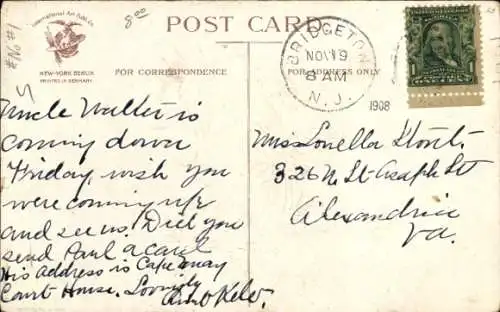 International Art Pub. Co.
NEW-YORK BERLIN
PRINTED IN GERMANY
# No #1
8 00
POST CARD
FOR CORRESPONDENCE
FOR ADDRESS ONLY
BRIDGETON
NOV 19
8 AM
N.J.
1908
1
Uncle Walter is
coming down
Friday wish you
were coming up
and see us. Did you
send Paul a card
His address is Cape May
Court House. Lovingly
Aunt
Miss Louella
326 N St Asaph St
Alexandria
Va.